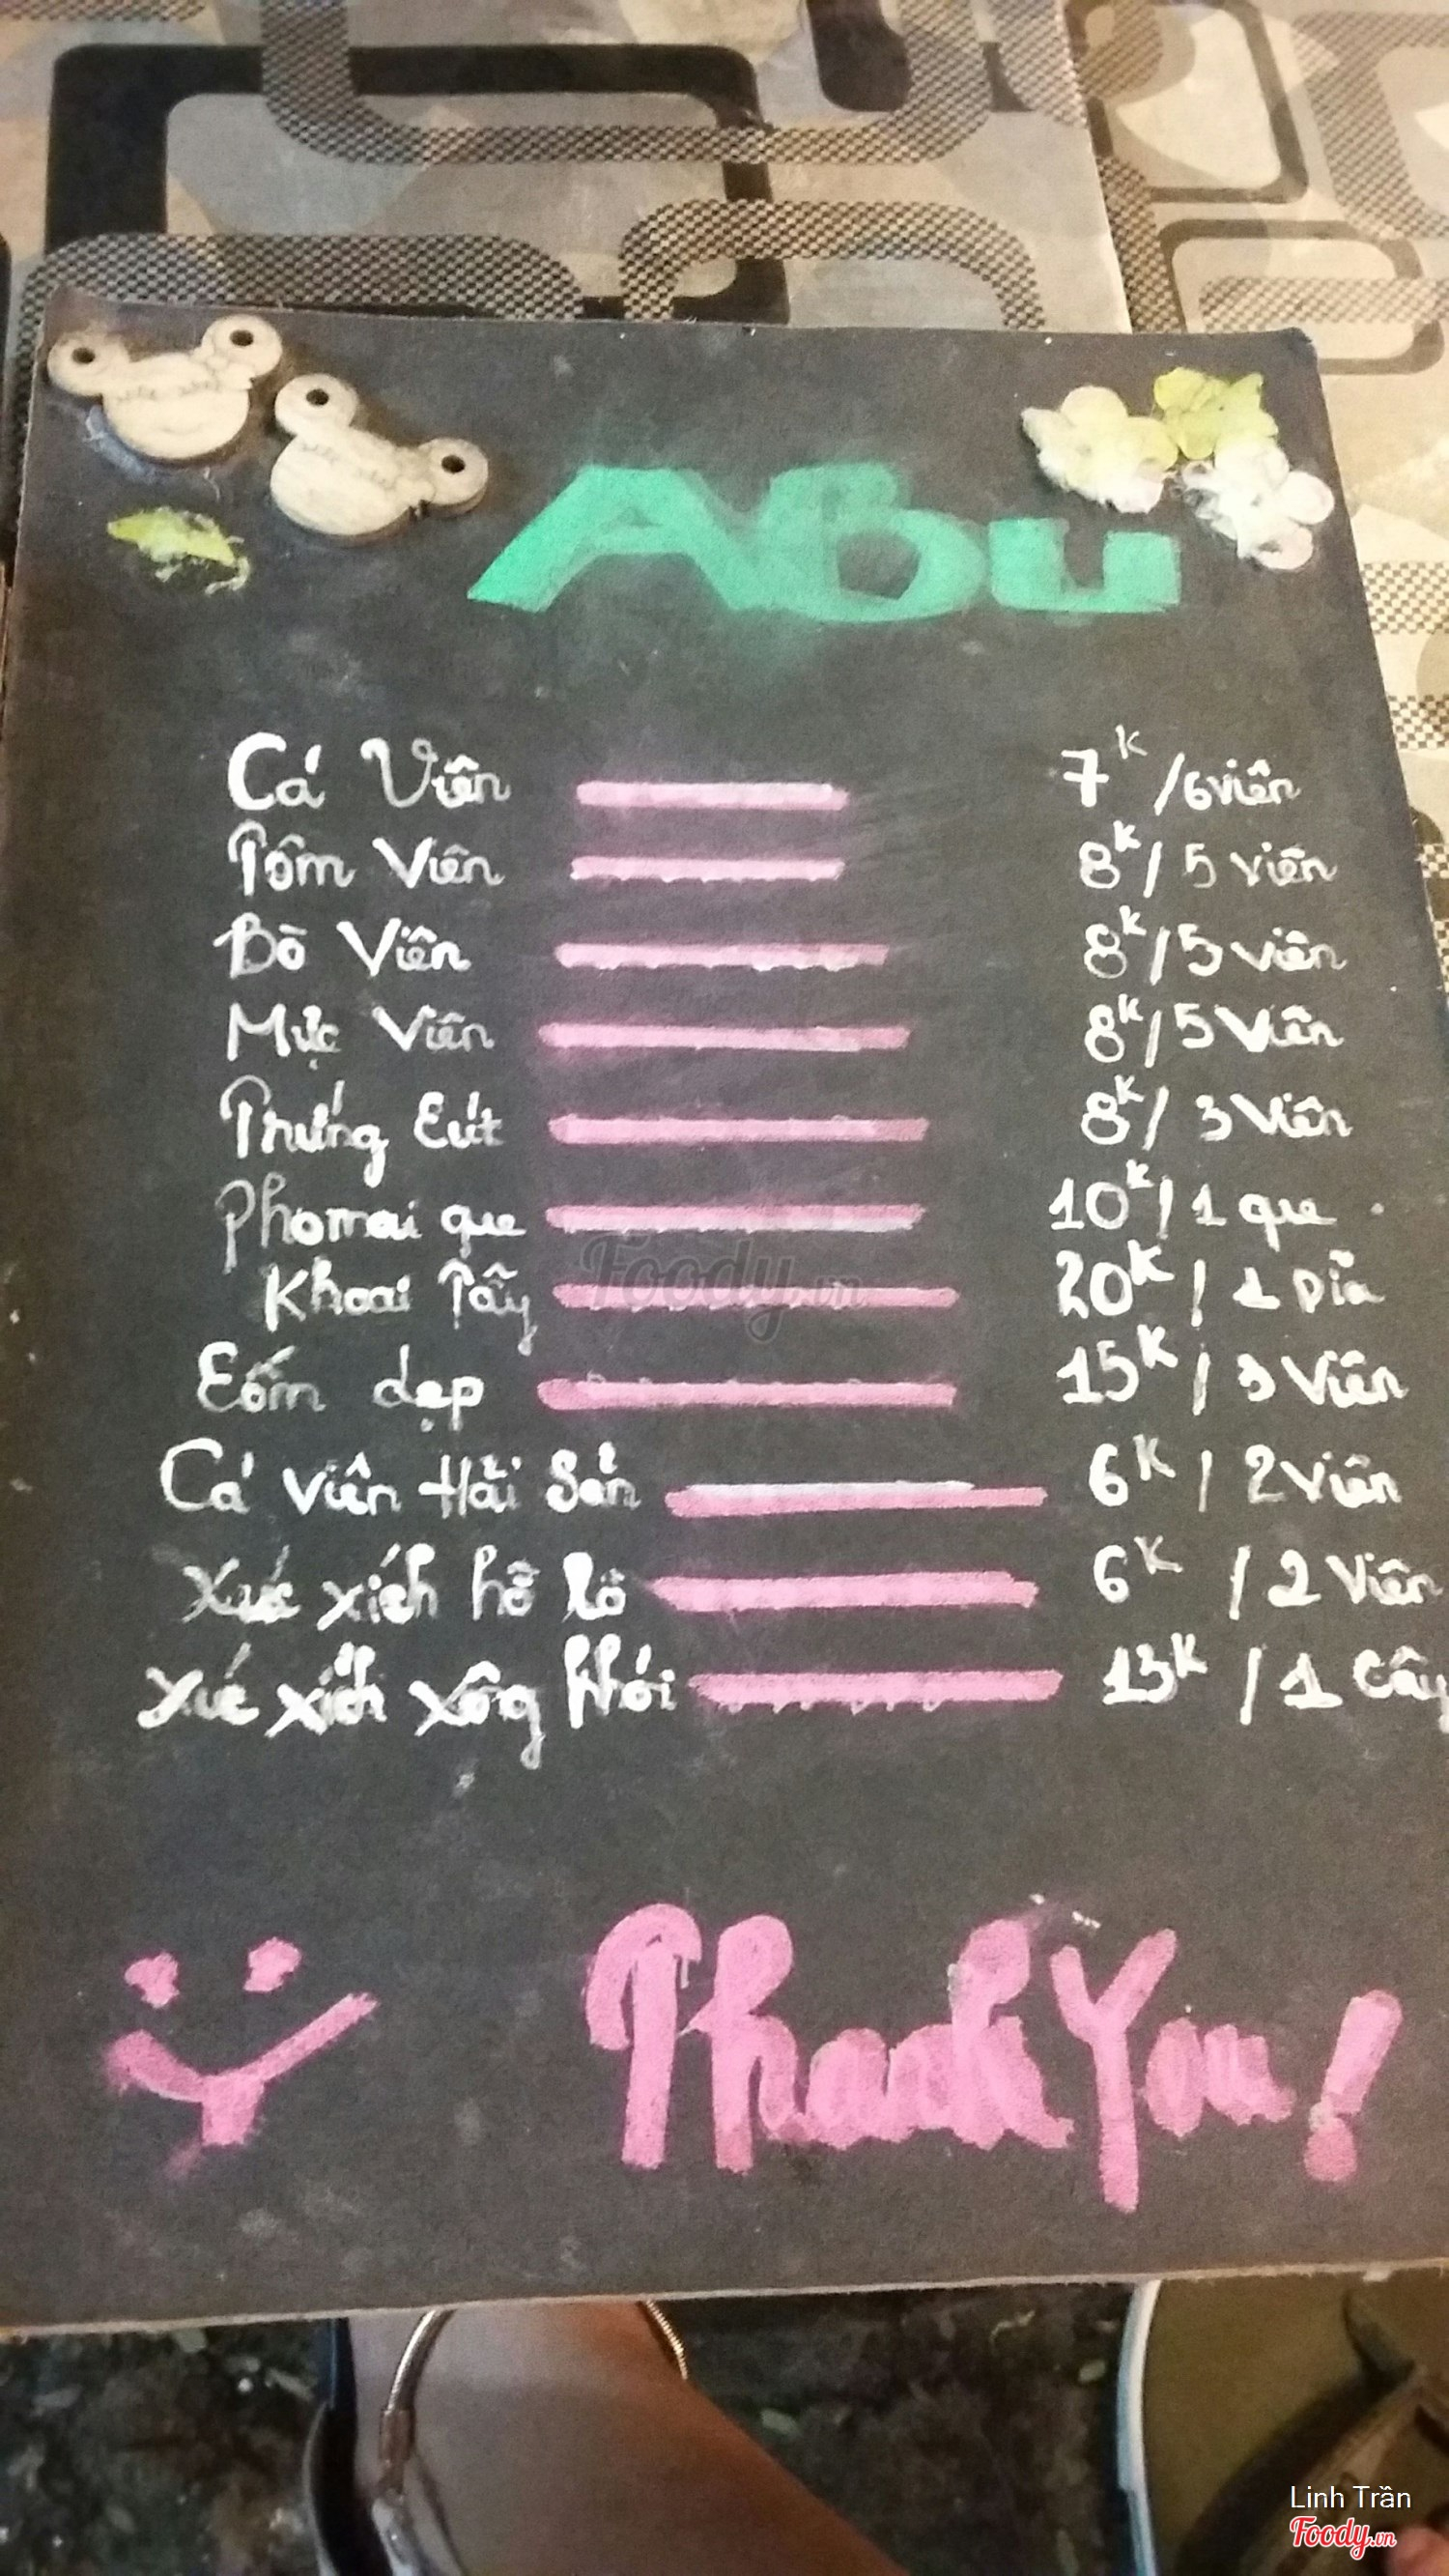 ABu
Cá Viên 7k/6 viên
Tôm Viên 8k/5 viên
Bò Viên 8k/5 viên
Mực Viên 8k/5 Viên
Trứng Cút 8k/3 Viên
Phomai que 10k/1 que
Khoai Tây 20k/1 Dĩa
Cốm dẹp 15k/3 Viên
Cá Viên Hải Sản 6k/2 Viên
Xúc xích hồ lô 6k/2 Viên
Xúc xích xông khói 13k/1 Cây
Thank You!
Foody.vn
Linh Trần
Foody.vn